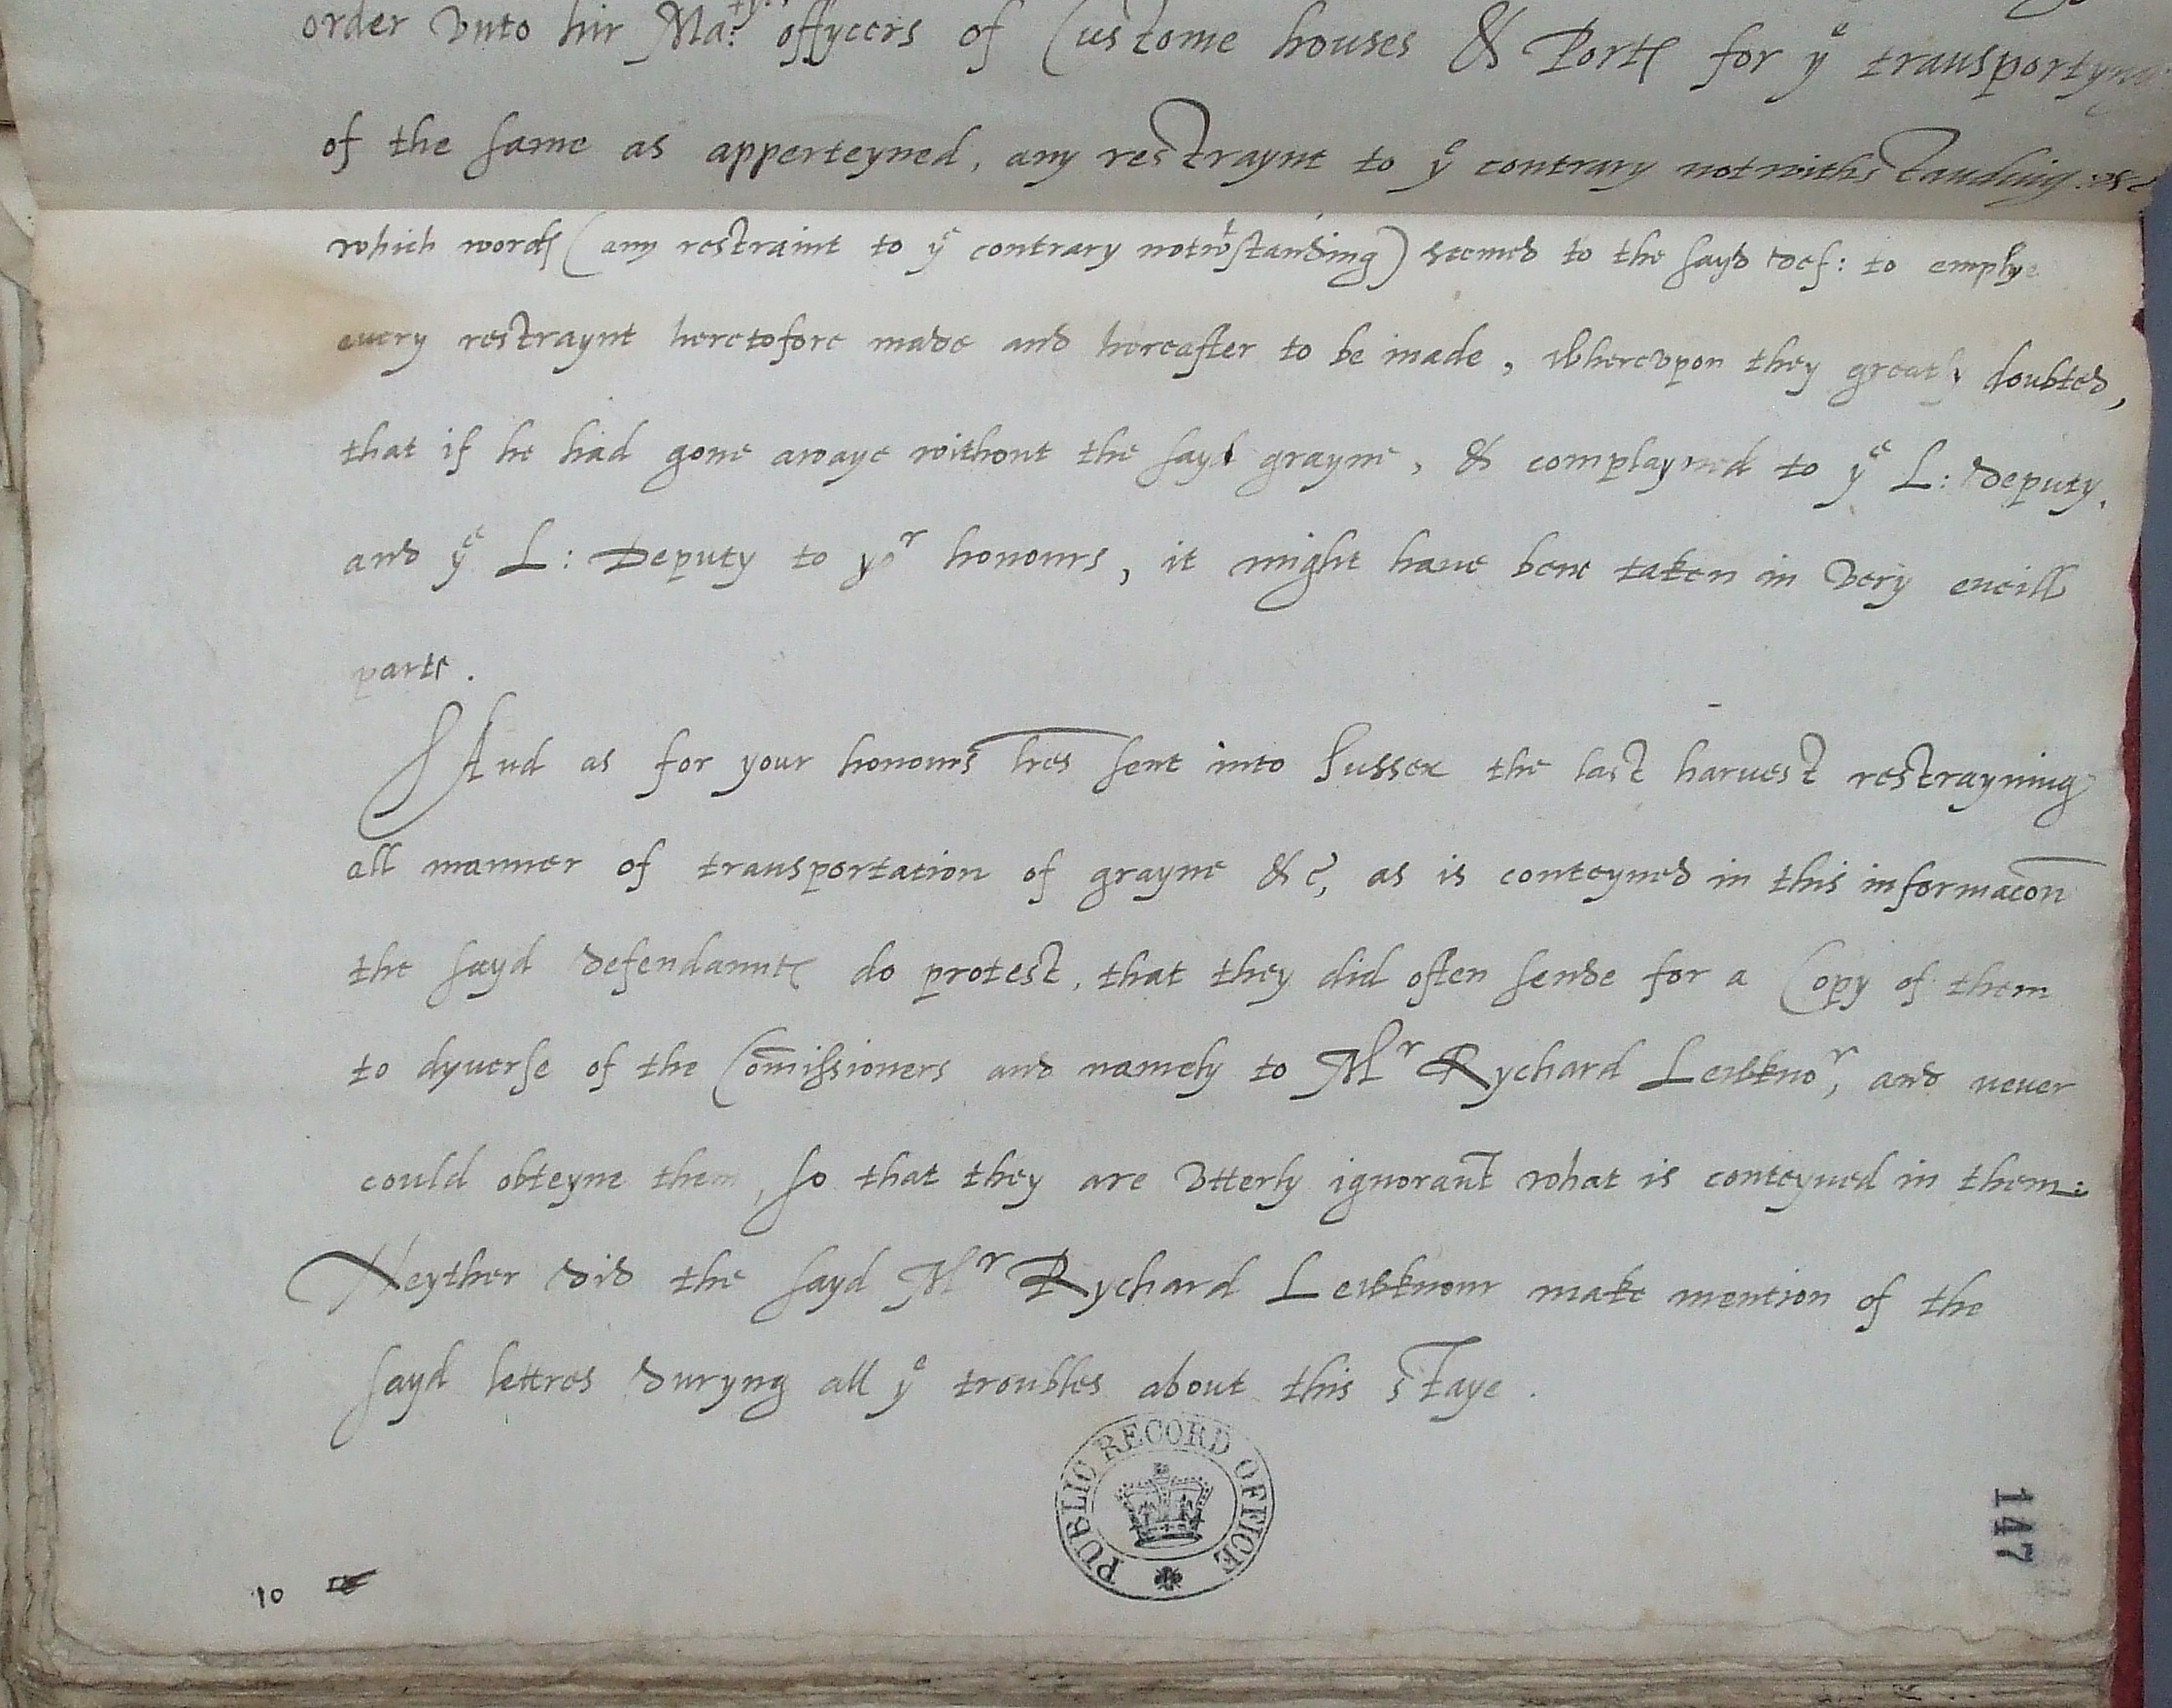 order vnto hir Ma:tys offycers of Custome houses & Portes for ye transportyng
of the same as apperteyned, any restraynt to ye contrary notwithstanding:
which wordes (any restraint to ye contrary notwtstanding) seemed to the sayd def: to emplye
euery restraynt heretofore made and hereafter to be made, Wherevpon they greatly doubted,
that if he had gone awaye without the sayd grayne, & complayned to ye L: deputy,
and ye L: Deputy to yor honours, it might haue bene taken in very eueill
parte.
And as for your honours lres sent into Sussex the last harvest restrayning
all manner of transportation of grayne &c, as is conteyned in this informacon
the sayd defendauntes do protest, that they did often sende for a Copy of them
to dyuerse of the Comissioners and namely to Mr Rychard Lewknor, and neuer
could obteyne them, so that they are vtterly ignorant what is conteyned in them:
Neyther did the sayd Mr Rychard Lewknour make mention of the
sayd lettres duryng all ye troubles about this staye.
PUBLIC RECORD OFFICE
147
10